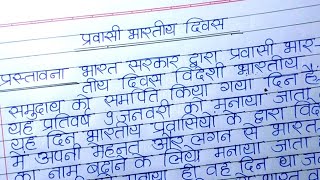 प्रवासी भारतीय दिवस
प्रस्तावना भारत सरकार द्वारा प्रवासी भार-
तीय दिवस विदेशी भारतीय
समुदाय को समर्पित किया गया दिन है
यह प्रतिवर्ष 9 जनवरी को मनाया जाता
यह दिन भारतीय प्रवासियो के द्वारा विदे
में अपनी मेहनत और लगन से भारत
का नाम बढ़ाने के लिए मनाया जाता
मनाया ही वह दिन था जब